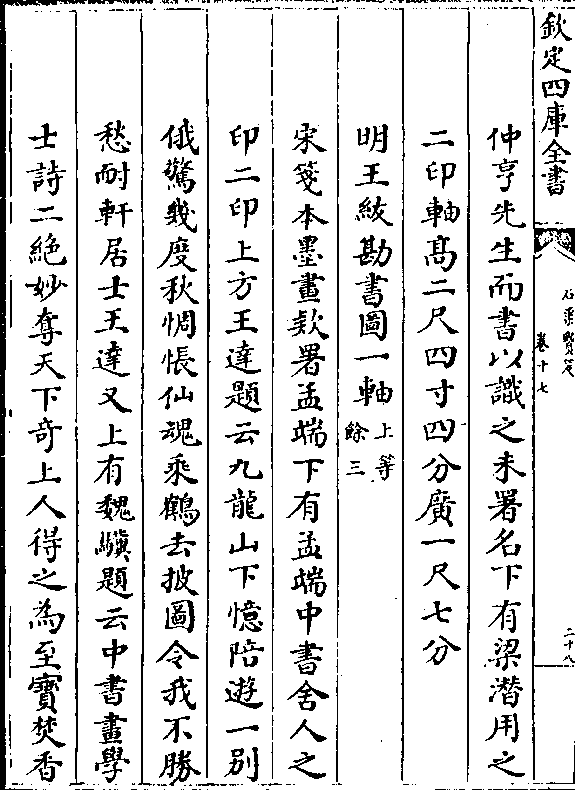 欽定四庫全書
石渠寶笈
卷十七
二十八
仲亨先生而書以識之末署名下有梁潛用之
二印軸高二尺四寸四分廣一尺七分
明王紱勘書圖一軸上等
餘三
宋箋本墨畫欵署孟端下有孟端中書舍人之
印二印上方王達題云九龍山下憶陪遊一别
俄驚幾度秋惆悵仙魂乘鶴去披圖令我不勝
愁耐軒居士王達又上有魏驥題云中書畫學
士詩二絶妙奪天下奇上人得之為至寳焚香